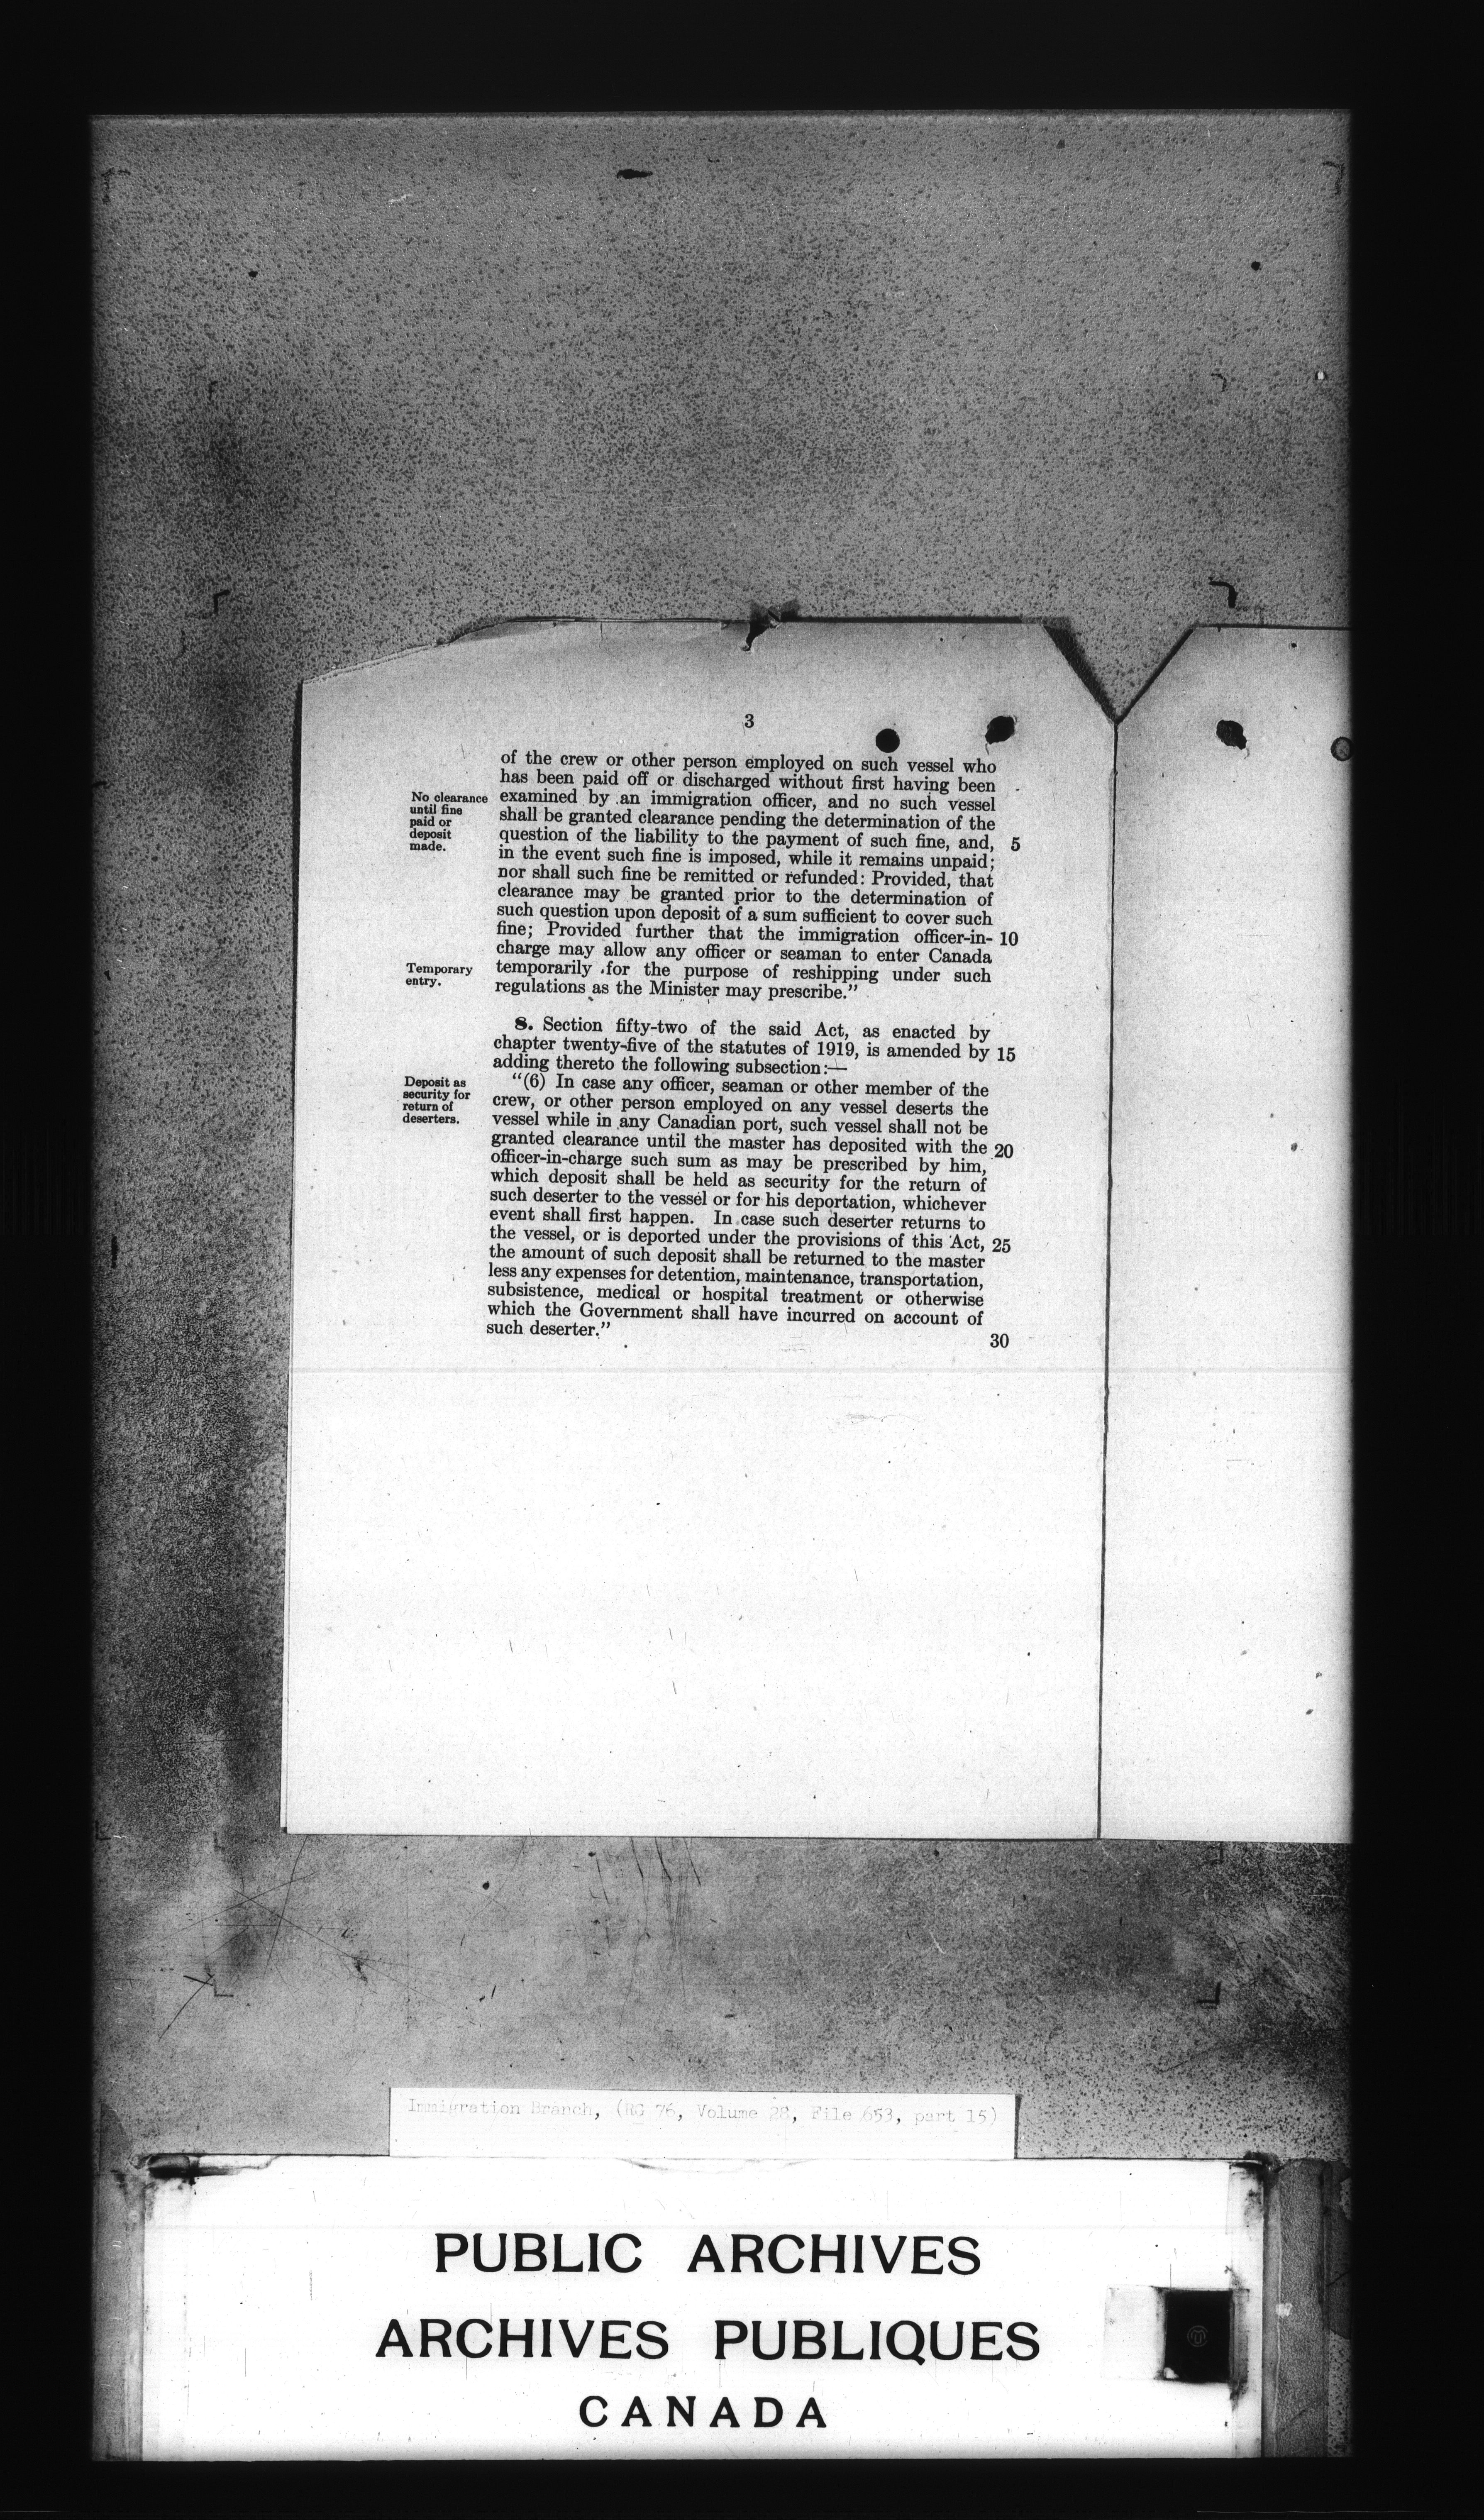 3
of the crew or other person employed on such vessel who
has been paid off or discharged without first having been
No clearance
until fine
paid or
deposit
made.
examined by an immigration officer, and no such vessel
shall be granted clearance pending the determination of the
question of the liability to the payment of such fine, and, 5
in the event such fine is imposed, while it remains unpaid;
nor shall such fine be remitted or refunded: Provided, that
clearance may be granted prior to the determination of
such question upon deposit of a sum sufficient to cover such
fine; Provided further that the immigration officer-in- 10
charge may allow any officer or seaman to enter Canada
Temporary
entry.
temporarily for the purpose of reshipping under such
regulations as the Minister may prescribe.”
8. Section fifty-two of the said Act, as enacted by
chapter twenty-five of the statutes of 1919, is amended by 15
adding thereto the following subsection:—
Deposit as
security for
return of
deserters.
“(6) In case any officer, seaman or other member of the
crew, or other person employed on any vessel deserts the
vessel while in any Canadian port, such vessel shall not be
granted clearance until the master has deposited with the 20
officer-in-charge such sum as may be prescribed by him,
which deposit shall be held as security for the return of
such deserter to the vessel or for his deportation, whichever
event shall first happen. In case such deserter returns to
the vessel, or is deported under the provisions of this Act, 25
the amount of such deposit shall be returned to the master
less any expenses for detention, maintenance, transportation,
subsistence, medical or hospital treatment or otherwise
which the Government shall have incurred on account of
such deserter.”
30
Immigration Branch, (RG 76, Volume 28, File 653, part 15)
PUBLIC ARCHIVES
ARCHIVES PUBLIQUES
CANADA